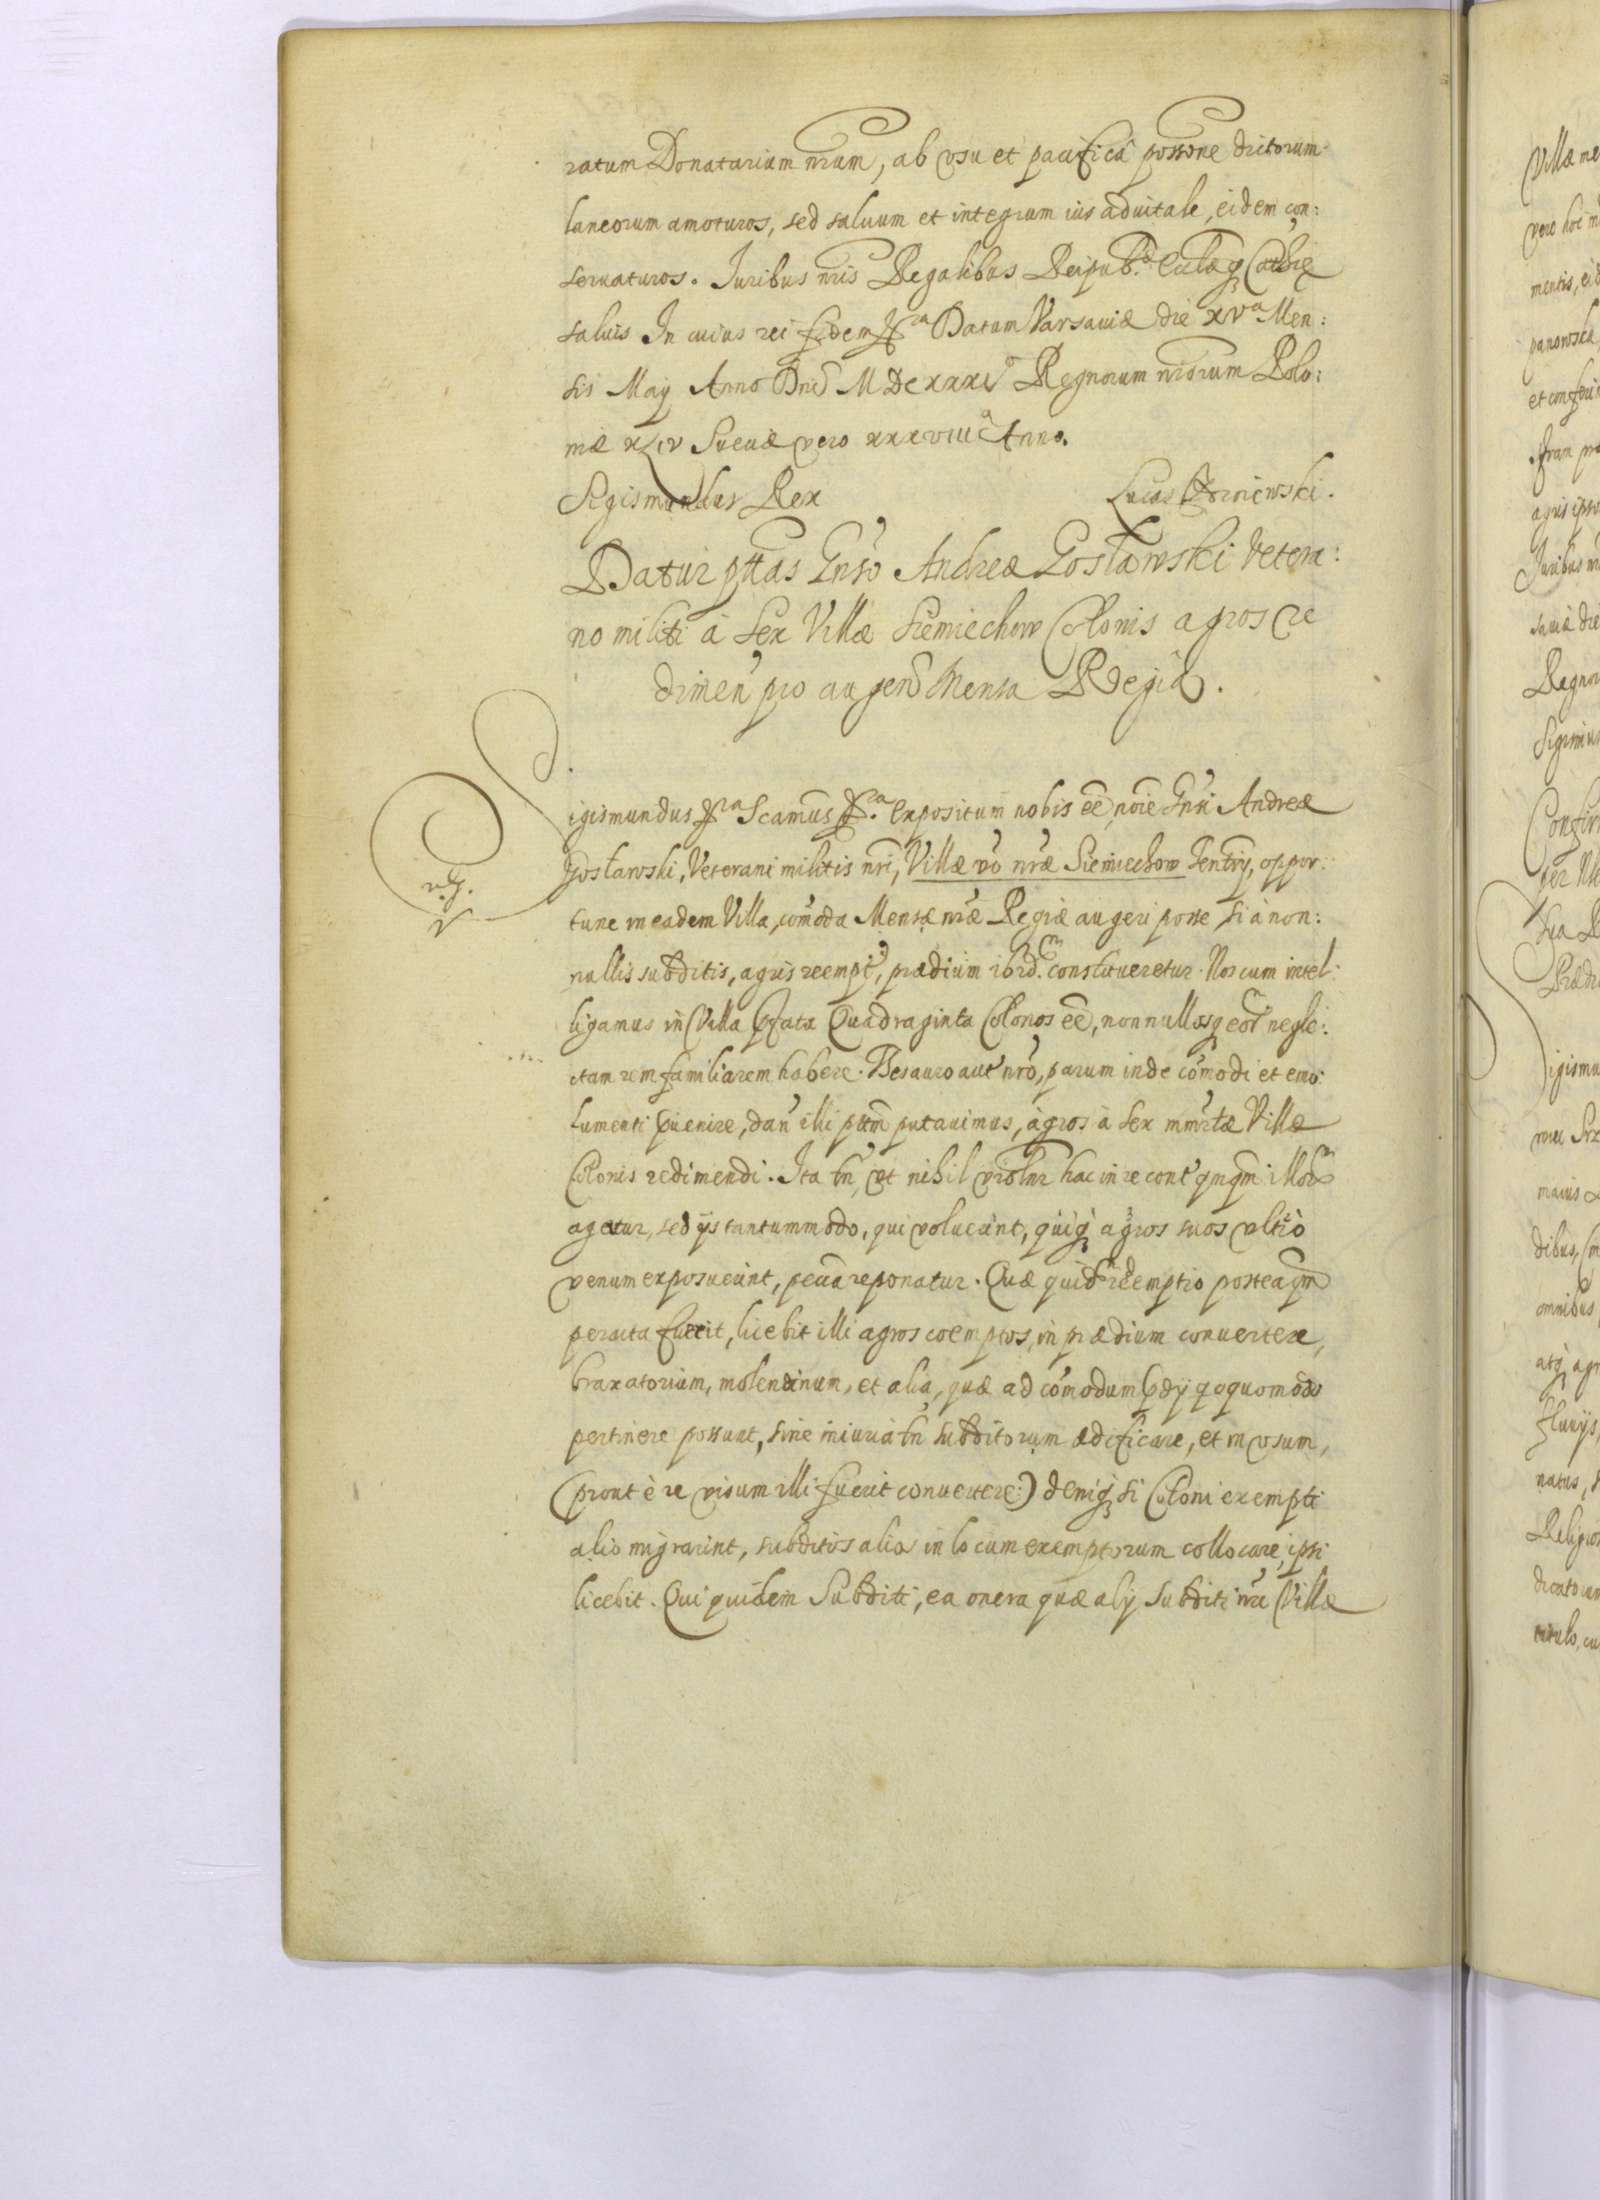 ratum Donatarium nrum, ab vsu et pacifica possone dictorum
laneorum amoturos, sed saluum et integrum ius aduitale, eidem con:
seruaturos. Iuribus nris Regalibus Reipub. Cathæ
saluis In cuius rei fidem Datum Varsauiæ die xva Men:
sis Maij Anno Dni Regnorum nrorum Polo:
niæ xliv Sueciæ vero xxxviii Anno.
Sigismundus Rex
Lucas
Datur pttas Gnso Andreæ Gosławski Vetera:
no militi à sex Villæ Siemiechow Colonis agros re
dimen pro augen Mensa Regia.
igismundus Expositum nobis ee, noie Gnsi Andreæ
Gosławski, Veterani militis nri, Villæ vo nræ Siemiechow Tentrij, oppor:
tune in eadem Villa, comoda Mensæ nræ Regiæ augeri posse, si à non:
nullis subditis, agris reempt, prædium ibid. constitueretur. Nos cum intel:
ligamus in Villa pfata Quadraginta Colonos ee, nonnullosq eor negle:
ctam rem familiarem habere. Thesauro aut nro, parum inde comodi et emo:
lumenti puenire, dan illi pttm putauimus, agros à sex mmrtæ Villæ
Colonis redimendi. Ita tn, vt nihil violntr hac in re cont qmqm illor
agatur, sed ijs tantummodo, qui voluerint, quiq agros suos vltro
venum exposuerint, pecua reponatur. Quæ quid redemptio posteaqm
peracta fuerit, licebit illi agros coemptos, in prædium conuertere,
braxatorium, molendinum, et alia, quæ ad comodum pdij qoquomodo
pertinere possunt, sine iniuria tn subditorum ædificare, et in vsum,
(prout è re visum illi fuerit conuertere:) deniq si Coloni exempti
alio migrarint, subditos alios in locum exemptorum collocare, ipsi
licebit. Qui quidem Subditi, ea onera quæ alij subditi nræ Villæ